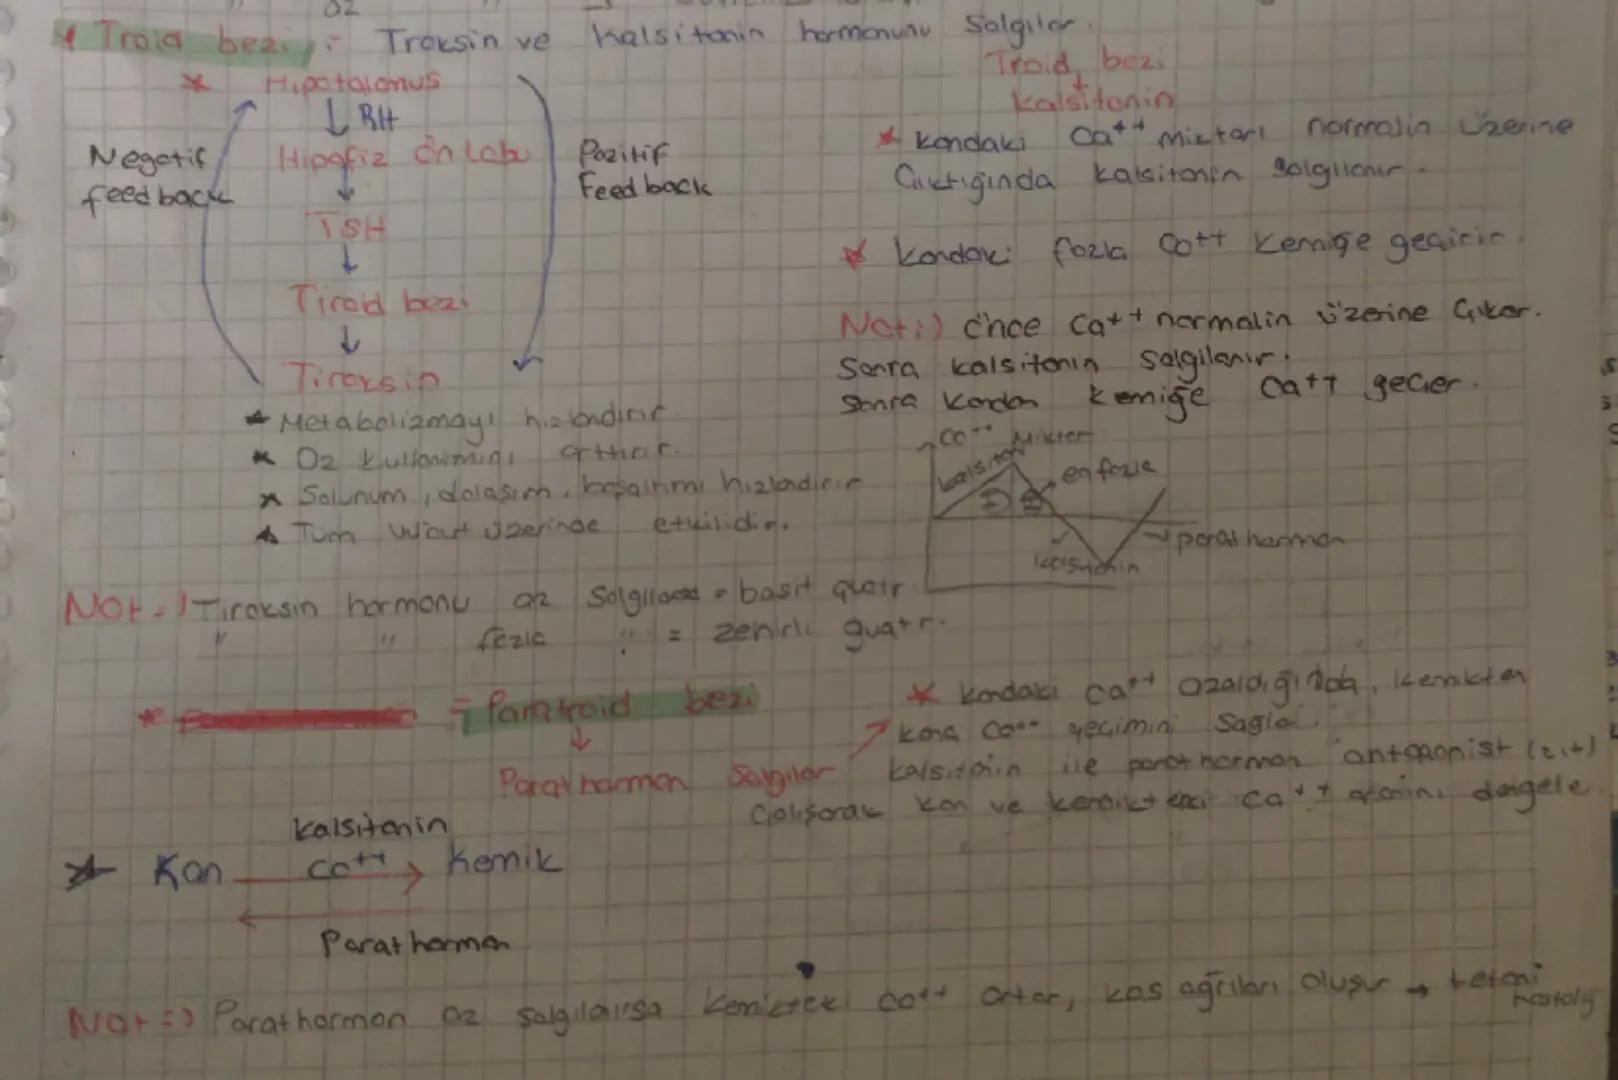 Troid bezi : Troksin ve Kalsitonin hormonunu Salgılar.
* Hipotalamus
↓ RH
Hipofiz ön lobu
↓
TSH
↓
Tiroid bezi
↓
Tiroksin
Negatif
feedback
Pozitif
Feedback
* Metabolizmayı hızlandırır
* O2 kullanımını arttırır.
* Solunum, dolaşım, boşaltımı hızlandırır
* Tüm vücut üzerinde etkilidir.
Troid bezi
↓
kalsitonin
* kandaki Ca++ miktarı normalin üzerine
Çıktığında kalsitonin salgılanır.
* kandaki fazla Ca++ kemiğe geçirir.
Not:) önce Ca++ normalin üzerine Çıkar.
Sonra kalsitonin salgılanır.
Sonra kandan kemiğe Ca++ geçer.
Ca++ Miktarı
kalsiton
en fazla
parathormon
kalsitonin
Not:) Tiroksin hormonu az Salgılanırsa = basit guatr
" " fazla " = zehirli guatr.
* = Paratroid bezi
↓
Parathormon Salgılar
* kandaki Ca++ azaldığında, kemikten
kana Ca++ geçimini Sağlar.
kalsitonin ile parathormon antagonist (zıt)
Çalışarak kan ve kemikteki Ca++ oranını dengele
kalsitonin
* Kan Ca++ → kemik
←
Parathormon
Not:) Parathormon az salgılanırsa kemikteki Ca++ artar, kas ağrıları oluşur → tetani
hastalığ